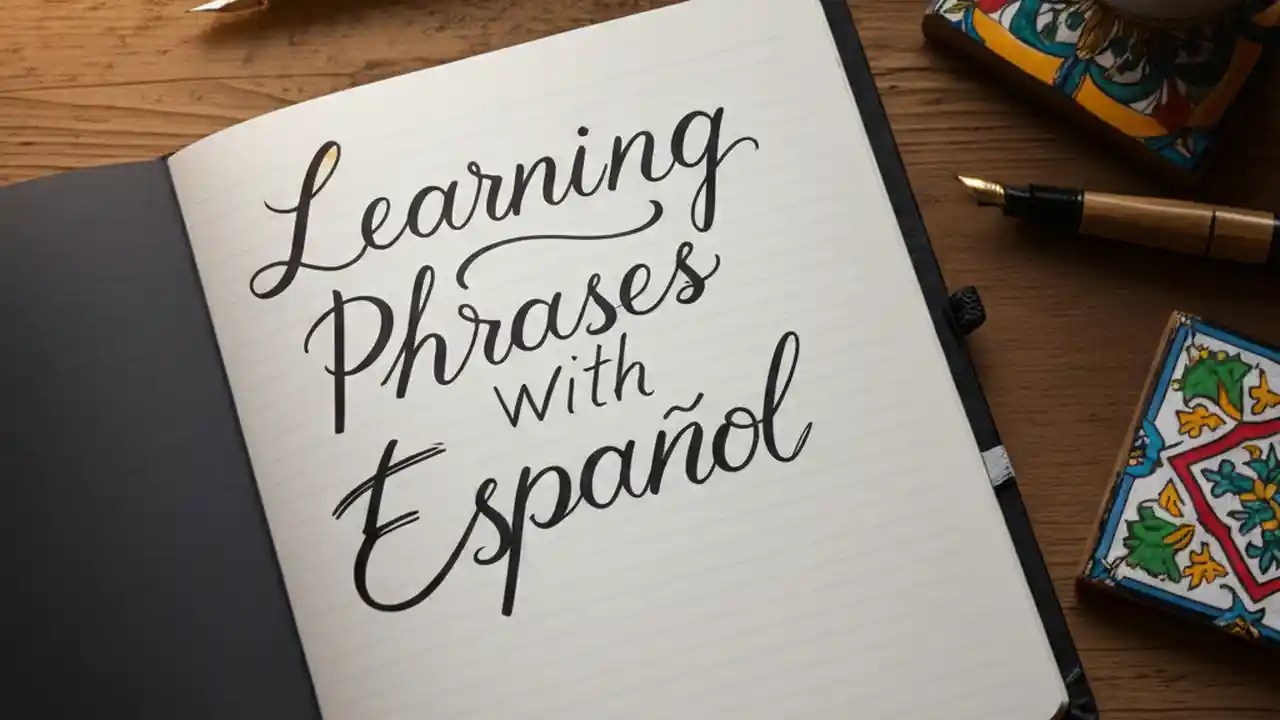 Learning
Phrases
with
Español